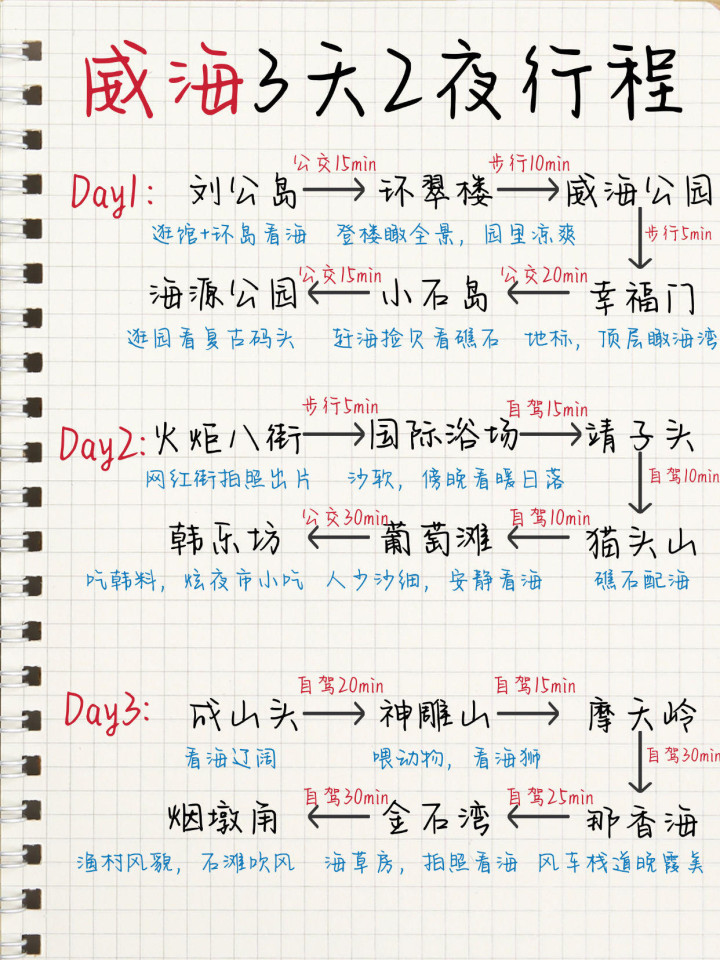 威海3天2夜行程
公交15min 步行10min
Day1: 刘公岛 环翠楼 威海公园
逛馆+环岛看海 登楼瞰全景，园里凉爽
步行5min
公交15min 公交20min
海源公园 小石岛 幸福门
逛园看复古码头 赶海捡贝看礁石 地标，顶层瞰海湾
步行5min 自驾15min
Day2: 火炬八街 国际浴场 靖子头
网红街拍照出片 沙软，傍晚看暖日落
自驾10min
公交30min 自驾10min
韩乐坊 葡萄滩 猫头山
吃韩料，炫夜市小吃 人少沙细，安静看海 礁石配海
自驾20min 自驾15min
Day3: 成山头 神雕山 摩天岭
看海辽阔 喂动物，看海狮
自驾30min
自驾30min 自驾25min
烟墩角 金石湾 那香海
渔村风貌，石滩吹风 海草房，拍照看海 风车栈道晚霞美